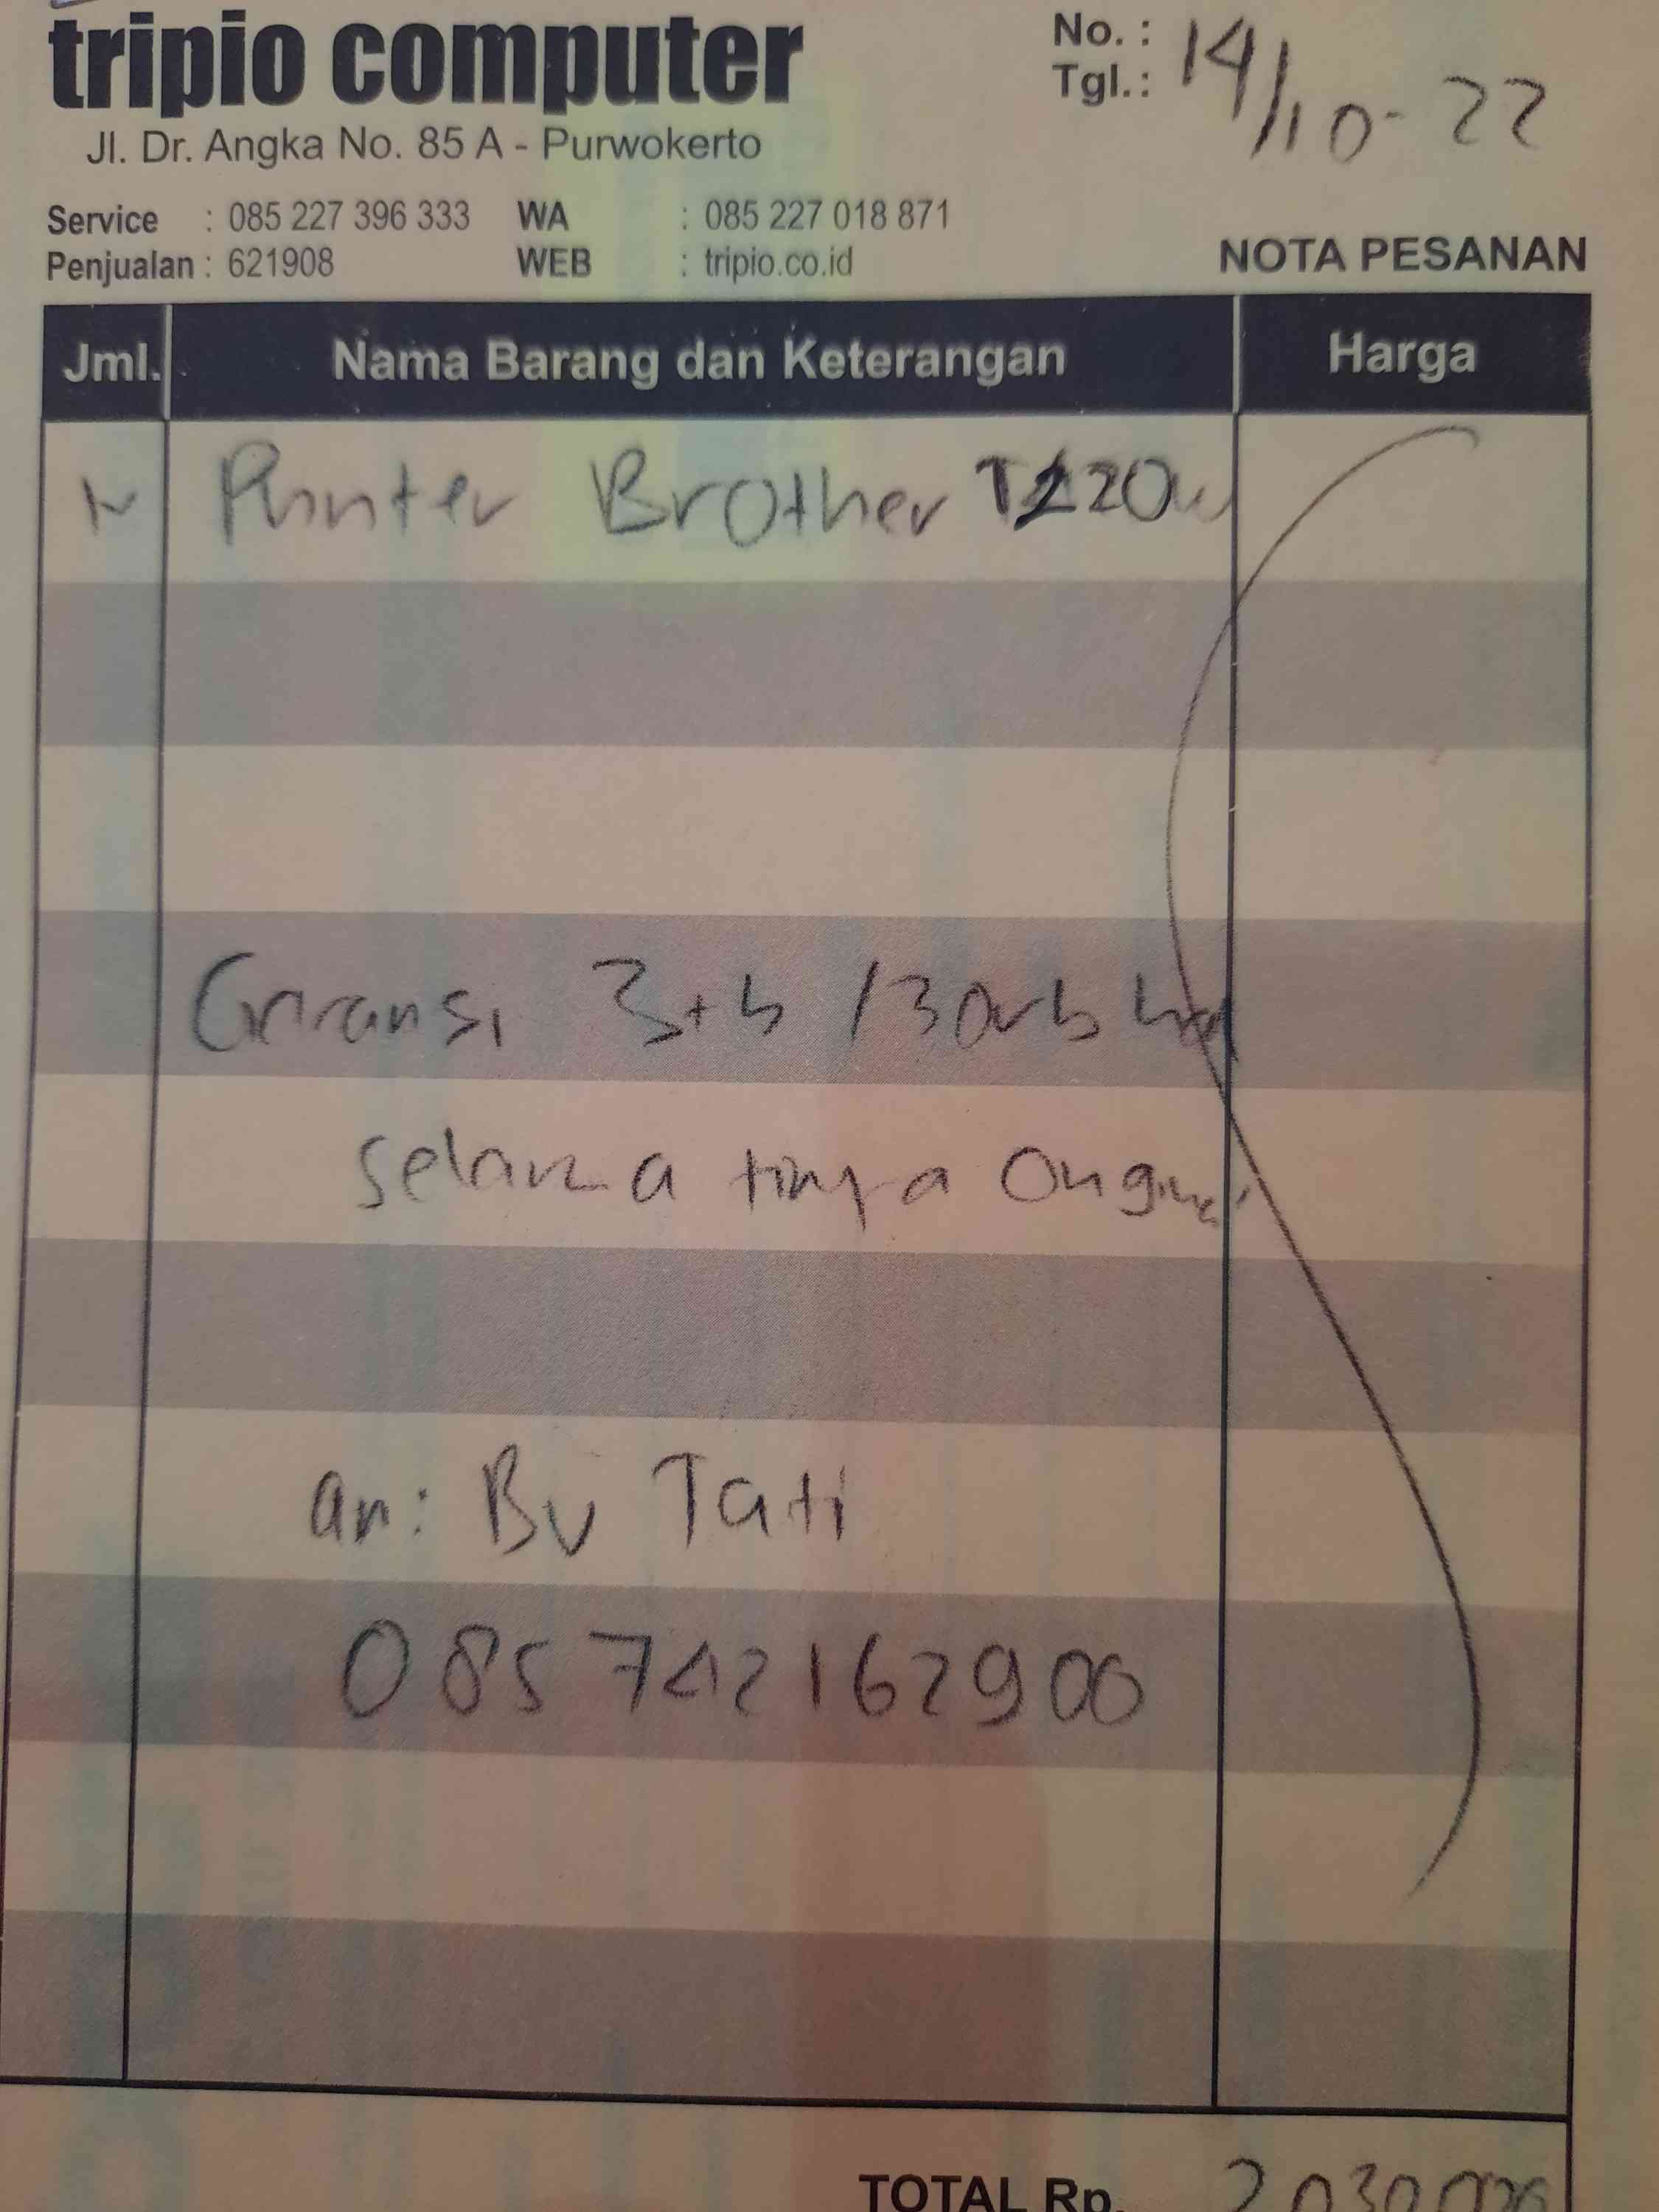 tripio computer
Jl. Dr. Angka No. 85 A - Purwokerto
Service : 085 227 396 333 WA : 085 227 018 871
Penjualan : 621908 WEB : tripio.co.id
No. :
Tgl. : 14/10-22
NOTA PESANAN
Jml. Nama Barang dan Keterangan Harga
Printer Brother T220w
Garansi 3th /30rb
selama tinta Original
an: Bu Tati
085742162900
TOTAL Rp. 2.030.000